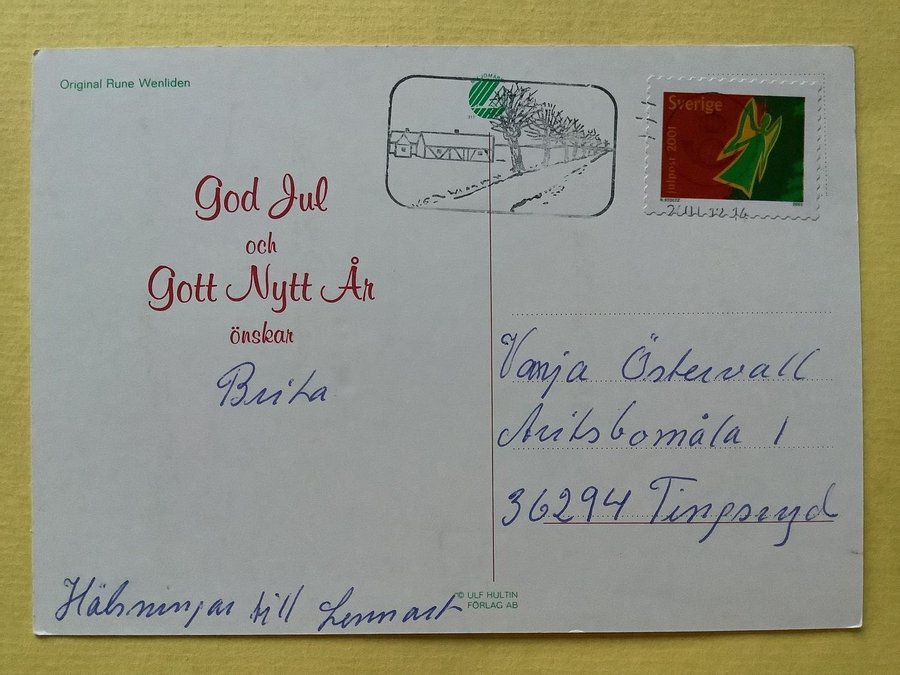 Original Rune Wenliden
Sverige
Julpost 2001
2001.12.14
God Jul
och
Gott Nytt År
önskar
Brita
Vanja Östervall
Aritsbomåla 1
36294 Tingsryd
Hälsningar till Lennart
© ULF HULTIN
FÖRLAG AB